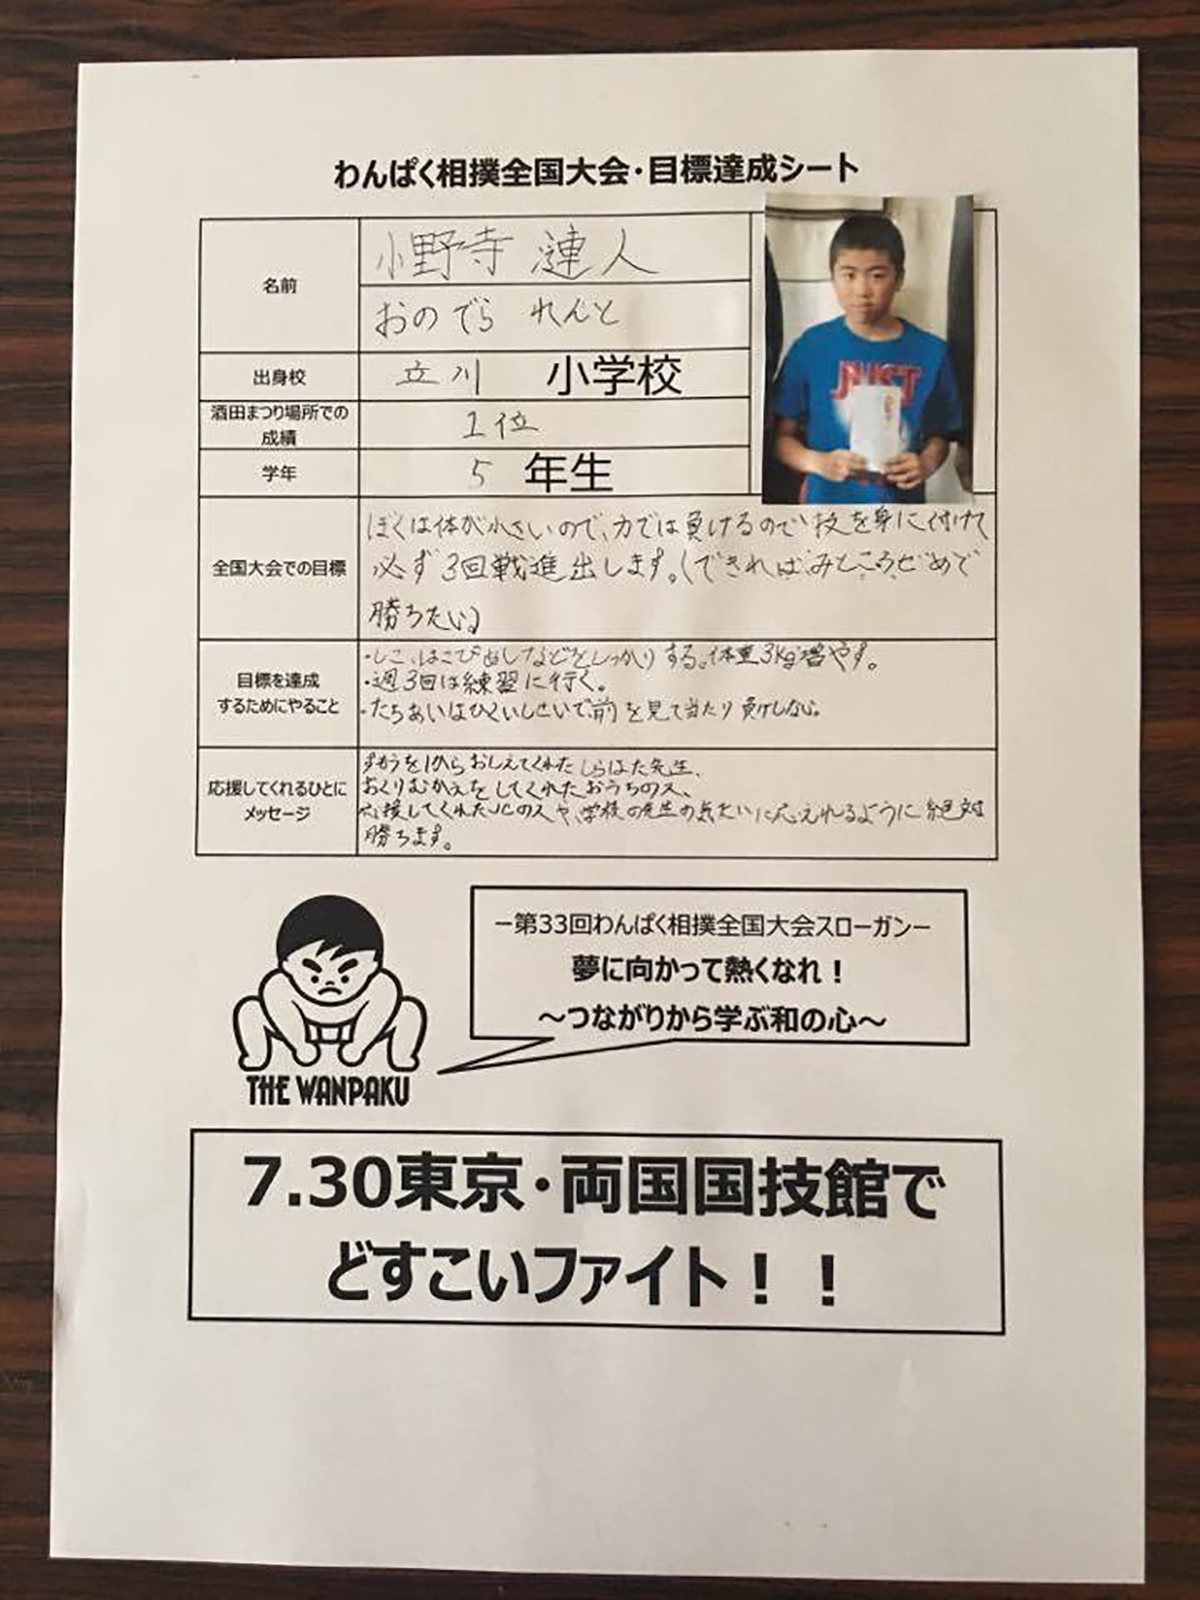 わんぱく相撲全国大会・目標達成シート
名前
小野寺 漣人
おのでら れんと
出身校
立川 小学校
酒田まつり場所での
成績
1位
学年
5 年生
全国大会での目標
ぼくは体が小さいので、力では負けるので技を身に付けて
必ず3回戦進出します。(できればみところぜめで
勝ちたい)
目標を達成
するためにやること
・しこ、はこび足などをしっかりする。体重3kg増やす。
・週3回は練習に行く。
・たちあいはひくいしせいで前を見て当たり負けしない。
応援してくれるひとに
メッセージ
すもうを1からおしえてくれたしらはた先生、
おくりむかえをしてくれたおうちの人、
応援してくれたJCの人や、学校の先生の気たいに応えれるように絶対
勝ちます。
JUST
－第33回わんぱく相撲全国大会スローガン－
夢に向かって熱くなれ！
～つながりから学ぶ和の心～
THE WANPAKU
7.30東京・両国国技館で
どすこいファイト！！